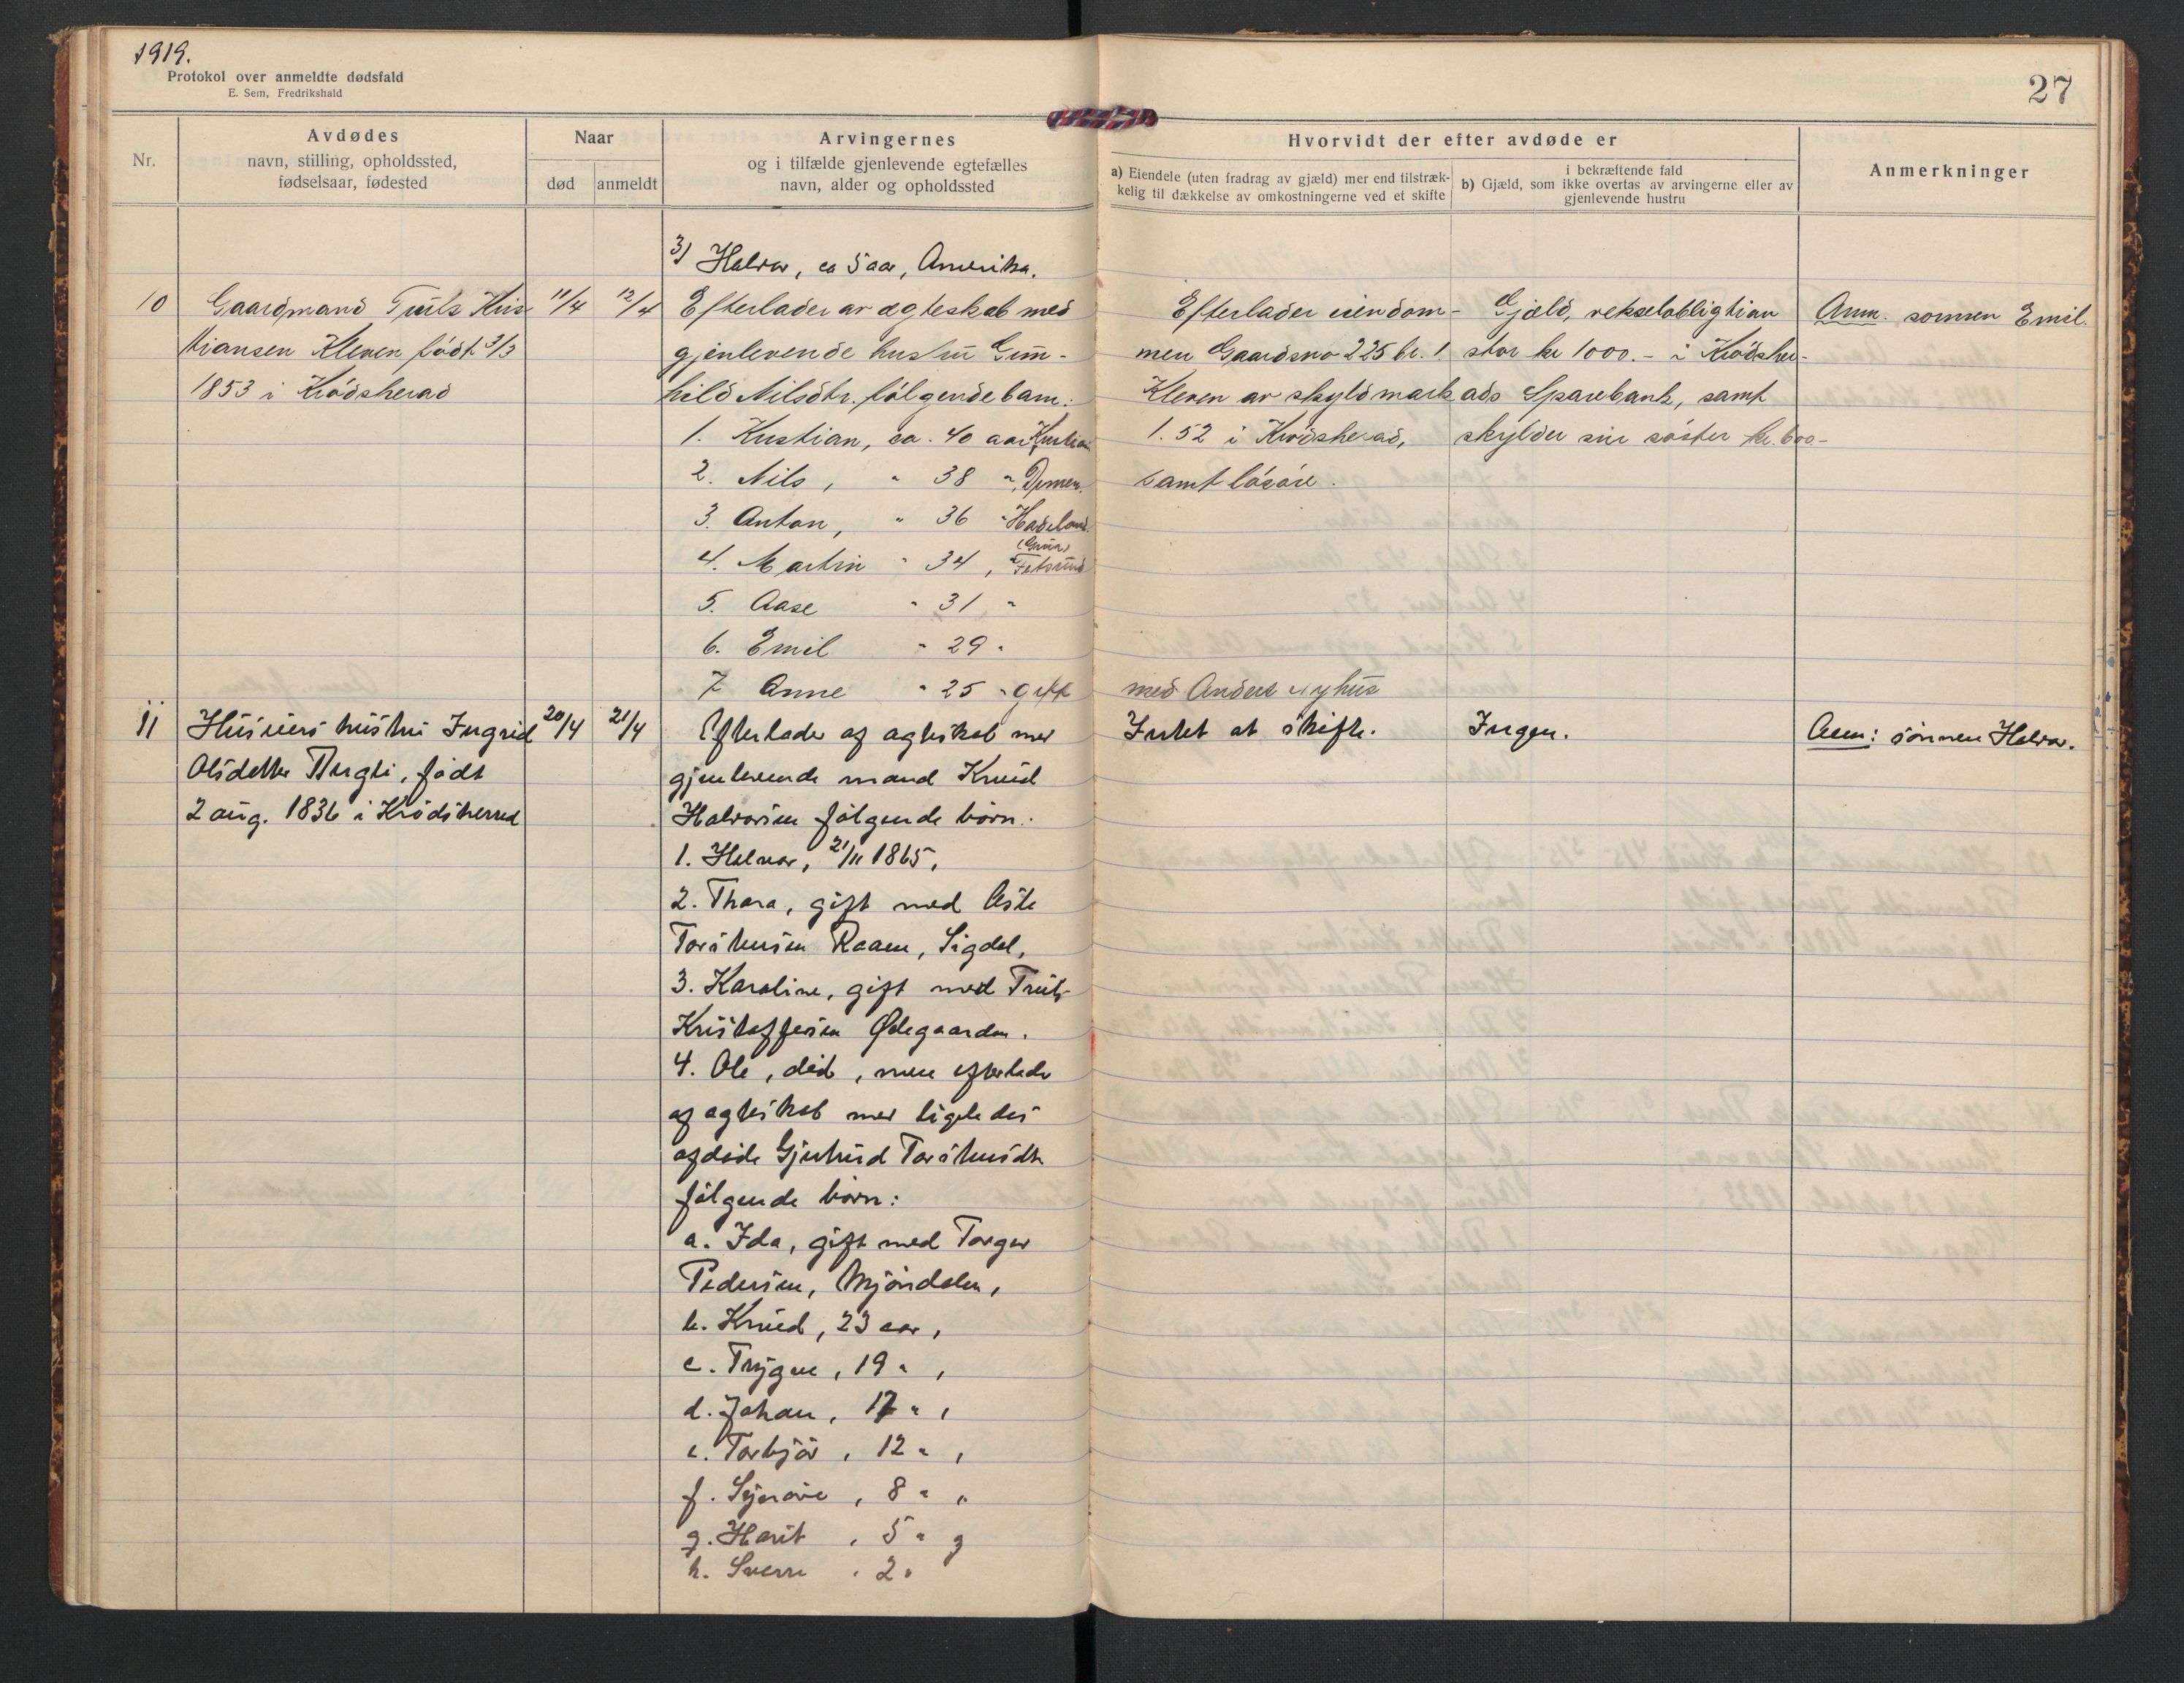 1919.
Protokol over anmeldte dødsfald
E. Sem, Fredrikshald
27
Nr.
Avdødes
navn, stilling, opholdssted,
fødselsaar, fødested
Naar
død
anmeldt
Arvingernes
og i tilfælde gjenlevende egtefælles
navn, alder og opholdssted
Hvorvidt der efter avdøde er
a) Eiendele (uten fradrag av gjæld) mer end tilstræk-
kelig til dækkelse av omkostningerne ved et skifte
i bekræftende fald
b) Gjæld, som ikke overtas av arvingerne eller av
gjenlevende hustru
Anmerkninger
3) Halvor, ca 5 aar, Amerika.
10
Gaardmand Truls Kris
tiansen Kleven født 3/3
1853 i Krødsherad
11/4
12/4
Efterlader av ægteskab med
gjenlevende hustru Gun-
hild Nilsdtr. følgende barn:
1. Kristian, ca. 40 aar Kristian
2. Nils, " 38 " Drmen.
3. Anton, " 36 " Hadeland.
4. Martin " 34, Fetsund
5. Aase " 31 "
6. Emil " 29 "
7 Anne " 25 " gift
med Anders Nyhus
Efterlader eiendom-
men Gaardsno 225 br. 1.
Kleven av skyld mark
1.52 i Krødsherad,
samt løsøre.
Gjeld, vekselobligtion
stor kr 1000.- i Krødsher-
ads Sparebank, samt
skylder sin søster kr. 600-
Anm. sønnen Emil.
11
Husmers hustru Ingrid
Olsdatter Thugli, født
2 aug. 1836 i Krødsherred
20/4
21/4
Efterlader af agteskab mer
gjenlevende mand Knud
Halvorsen følgende børn:
1. Halvor, 21/11 1865,
2. Thora, gift med Aste
Torstensen Raaen, Sigdal,
3. Karoline, gift med Truls
Kristoffersen Ødegaarden.
4. Ole, død, men efterlader
af agteskab mer ligeledes
afdøde Gjertrud Torstensdtr
følgende børn:
a. Ida, gift med Torger
Pedersen, Mjøndalen,
b. Knud, 23 aar,
c. Trygve, 19 " ,
d. Johan, 17 " ,
e. Torbjør, 12 " ,
f. Signove, 8 " "
g. Harit, 5 "
h. Sverre, 2 "
Intet at skifte.
Ingen.
Anm: sønnen Halvor.